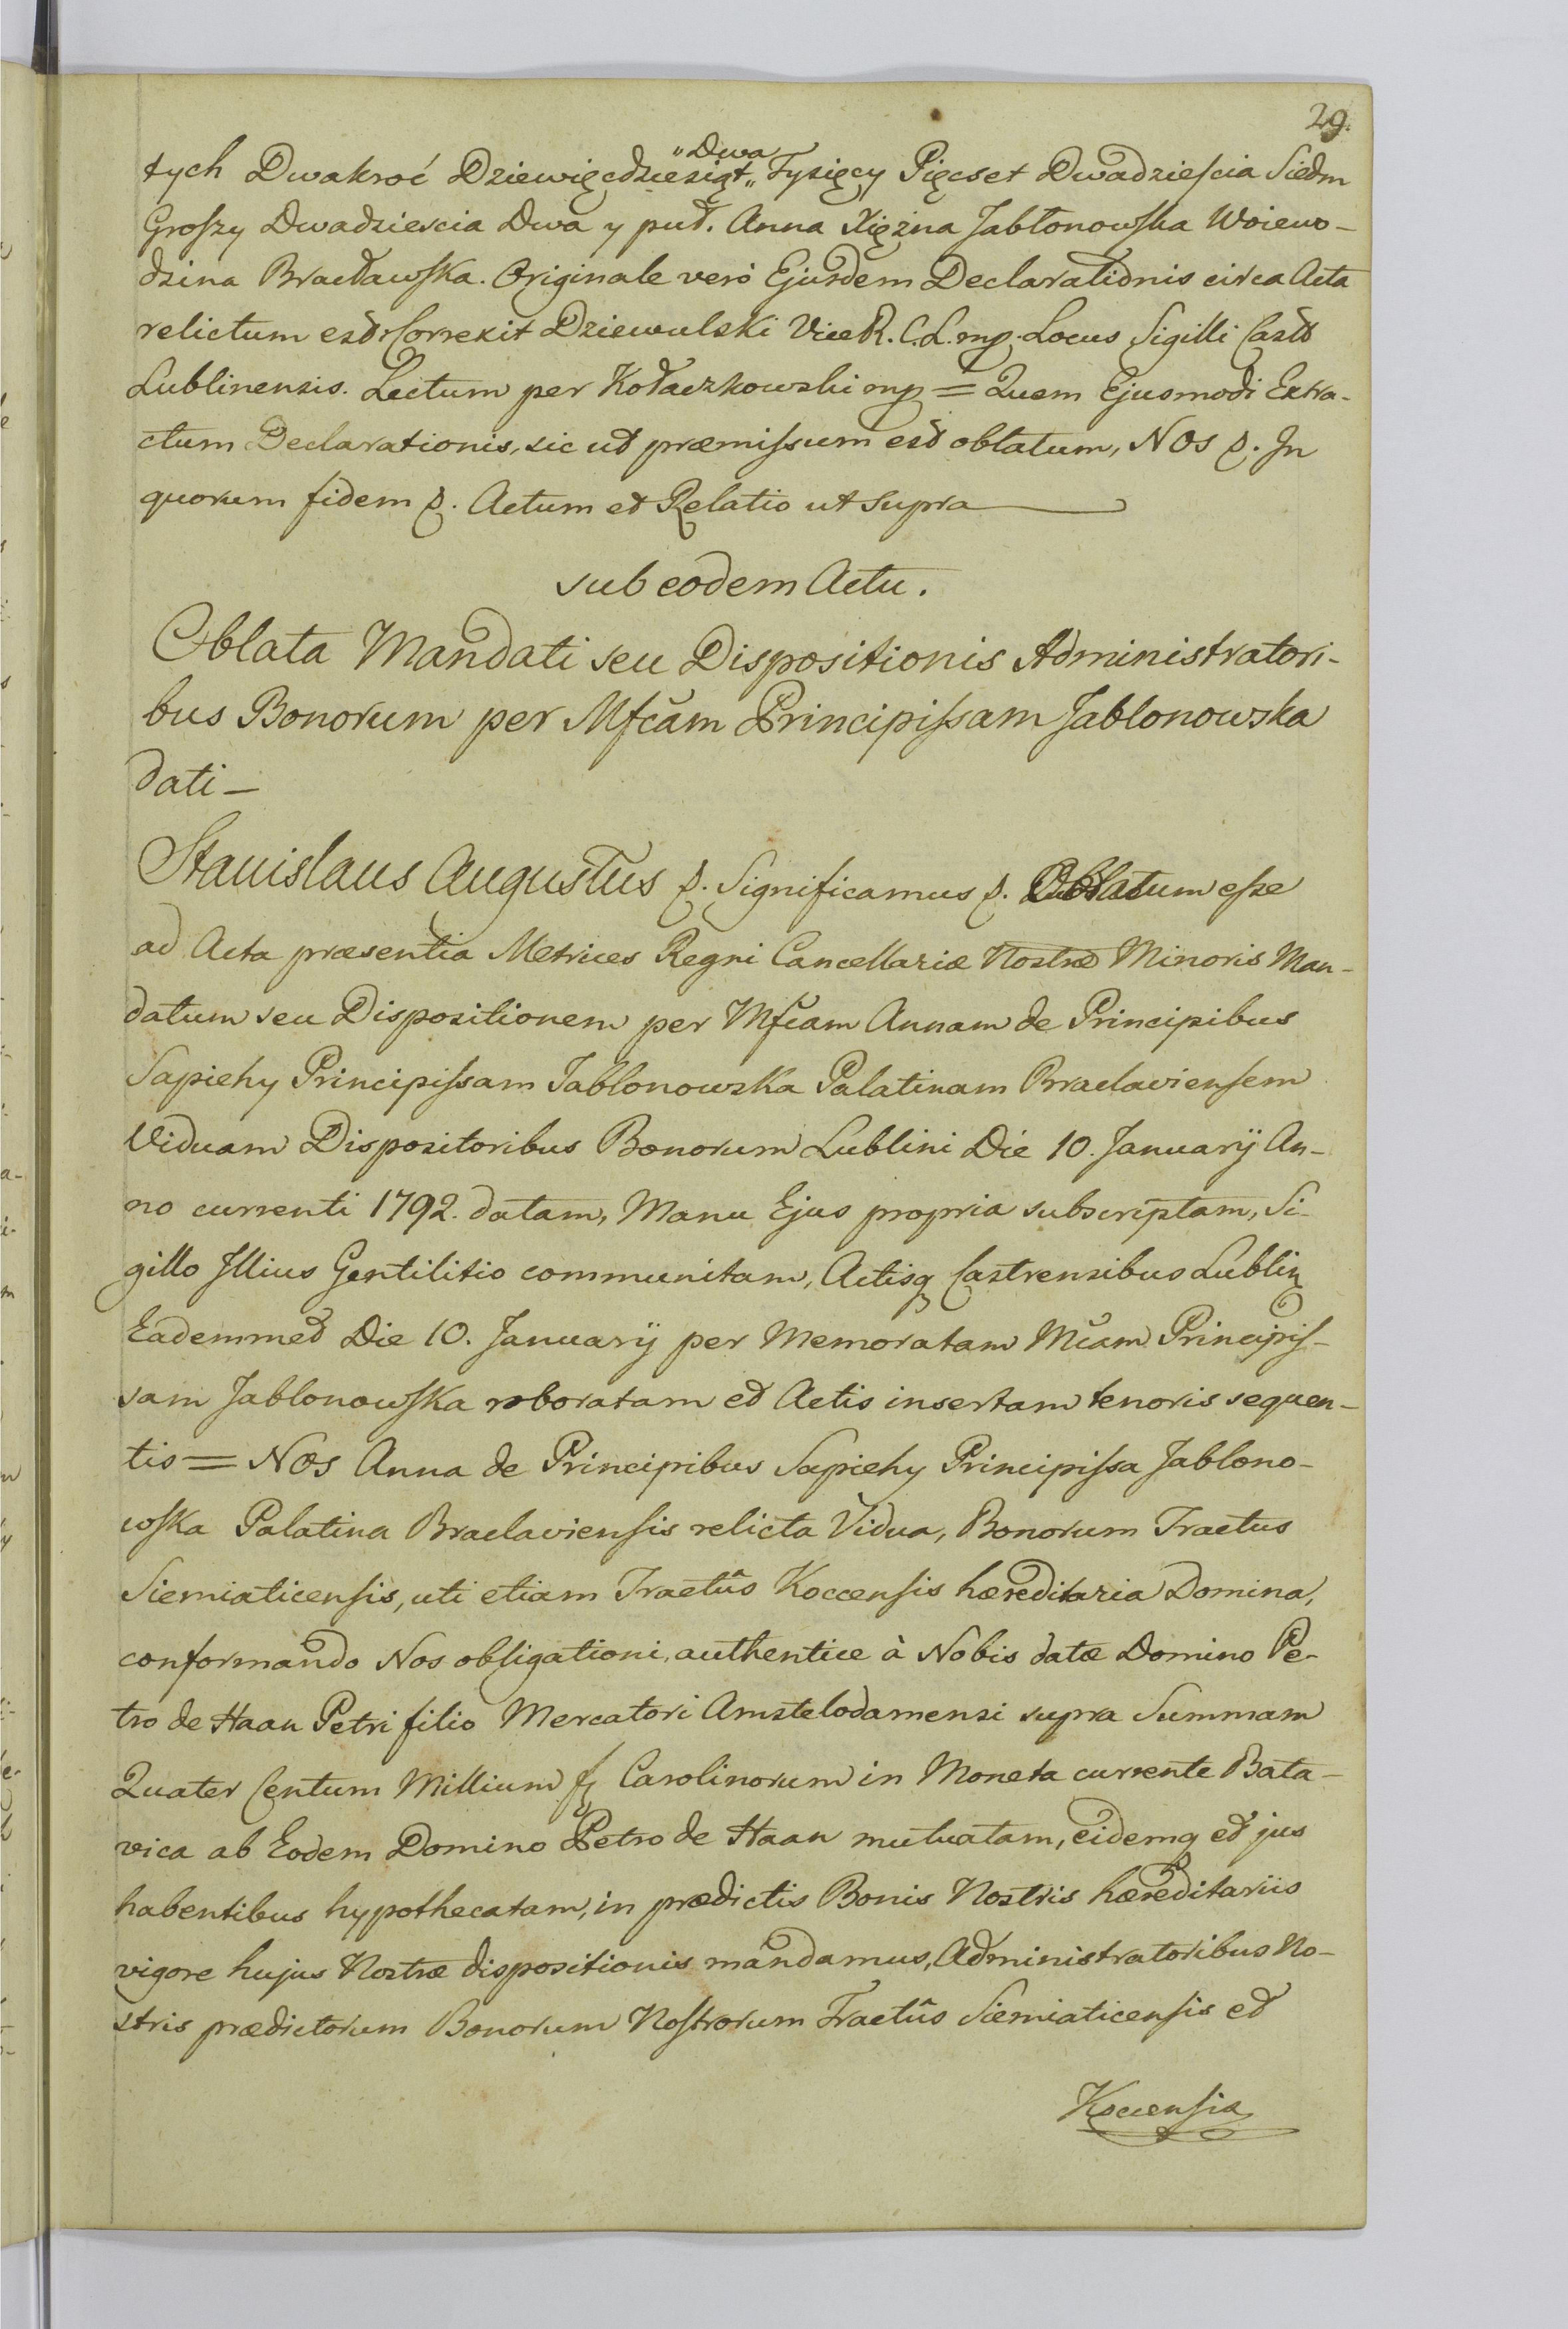 29.
tych Dwakroć Dziewięcdziesiąt „Dwa„ Tysięcy Pięcset Dwadzieścia Siedm
Groszy Dwadziescia Dwa y puł. Anna Xiężna Jabłonowska Woiewo-
dzina Bracławska. Originale verò Ejusdem Declarationis circa Acta
relictum est. Correxit Dziewulski Vice R. C. L. mp. Locus Sigilli Castr
Lublinensis. Lectum per Kołaczkowski mp = Quem Ejusmodi Extra-
ctum Declarationis, sic ut præmissum est oblatum, NOS p. In
quorum fidem p. Actum et Relatio ut supra
sub eodem Actu.
Oblata Mandati seu Dispositionis Administratori-
bus Bonorum per Mfcam Principissam Jablonowska
dati —
Stanislaus Augustus p. Significamus p. Oblatum esse
ad Acta præsentia Metrices Regni Cancellariæ Nostræ Minoris Man-
datum seu Dispositionem per Mfcam Annam de Principibus
Sapiehy Principissam Jablonowska Palatinam Braclaviensem
Viduam Dispositoribus Bonorum Lublini Die 10. Januarij An-
no currenti 1792. datam, Manu Ejus propria subscriptam, Si-
gillo Illius Gentilitio communitam, Actisq Castrensibus Lublin
Eademmet Die 10. Januarij per Memoratam Mcam Principis-
sam Jablonowska roboratam et Actis insertam tenoris sequen-
tis = Nos Anna de Principibus Sapiehy Principissa Jablono-
wska Palatina Braclaviensis relicta Vidua, Bonorum Tractus
Siemiaticensis, uti etiam Tractûs Koccensis hæreditaria Domina,
conformando Nos obligationi, authentice à Nobis datæ Domino Pe-
tro de Haan Petri filio Mercatori Amstelodamensi supra Summam
Quater Centum Millium fl Carolinorum in Moneta currente Bata-
vica ab Eodem Domino Petro de Haan mutuatam, eidemq et jus
habentibus hypothecatam, in prædictis Bonis Nostris hæreditariis
vigore hujus Nostræ dispositionis mandamus, Administratoribus No-
stris prædictorum Bonorum Nostrorum Tractûs Siemiaticensis et
Koccensis